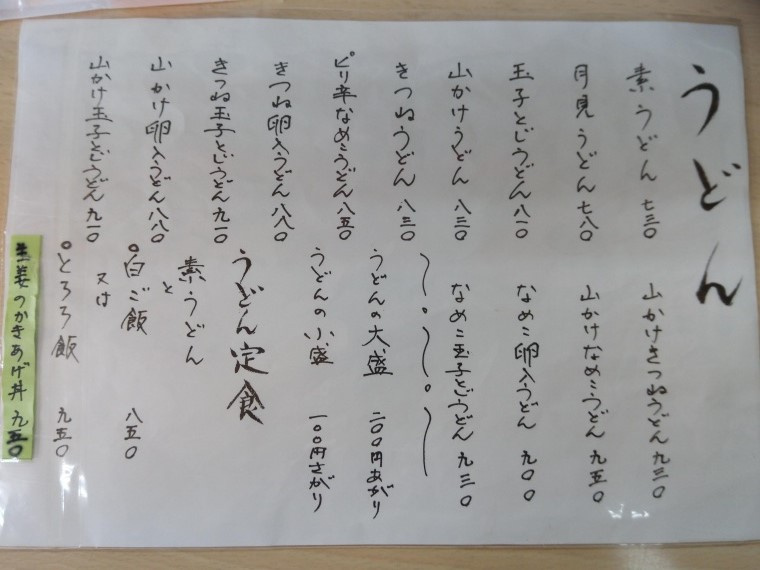 うどん
素うどん 七三〇
月見うどん 七八〇
玉子とじうどん 八一〇
山かけうどん 八三〇
きつねうどん 八三〇
ピリ辛なめこうどん 八五〇
きつね卵入うどん 八八〇
きつね玉子とじうどん 九一〇
山かけ卵入うどん 八八〇
山かけ玉子とじうどん 九一〇
山かけきつねうどん 九三〇
山かけなめこうどん 九五〇
なめこ卵入うどん 九〇〇
なめこ玉子とじうどん 九三〇
うどんの大盛 二〇〇円あがり
うどんの小盛 一〇〇円さがり
うどん定食
素うどん
と
白ご飯 八五〇
又は
とろろ飯 九五〇
生姜のかきあげ丼 九五〇